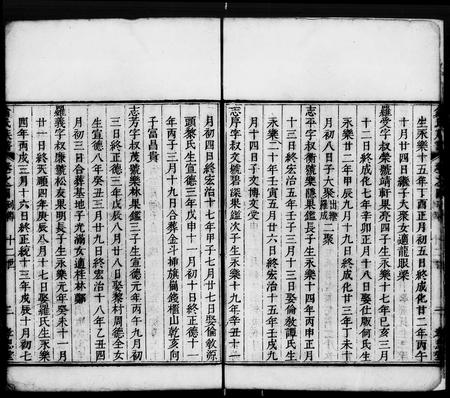 生永樂十五年丁酉正月初五日終成化廿二年丙午
十月廿四日繼子大聚女適龍眼梁
羅受字叔榮號靖軒果亮四子生永樂十七年己亥三月
十二日終成化七年辛卯正月十八日娶仕版何氏生
永樂廿二年甲辰九月十九日終成化廿三年丁未十
月初八日子大聚出繼羅成二聚
志平字叔衡號樂隱果鑑長子生永樂十四年丙申正月
十三日終宏治五年壬子三月十三日娶倫敎譚氏生
永樂二十年壬寅五月廿六日終宏治十五年壬戌九
月十四日子文博文愛
志厚字叔文號碧溪果鑑次子生永樂十九年辛丑十一
月初四日終宏治十七年甲子七月廿七日娶倫敎源
頭黎氏生宣德三年戊申十一月初十日終正德十一
年丙子三月十九日合葬金斗神旗員錢樞山乾亥向
子富昌貴
志芳字叔茂號樂樵果鑑三子生宣德元年丙午九月初
三日終正德三年戊辰八月廿八日娶黎村周德全女
生宣德八年癸丑三月廿九日終宏治十八年乙丑四
月初三日合葬象地子允滿女適桂林鄭
羅義字叔廉號松友果明長子生永樂元年癸未十一月
廿一日終天順四年庚辰八月十七日娶羅氏生永樂
四年丙戌三月十六日終正統十三年戊辰十月初七